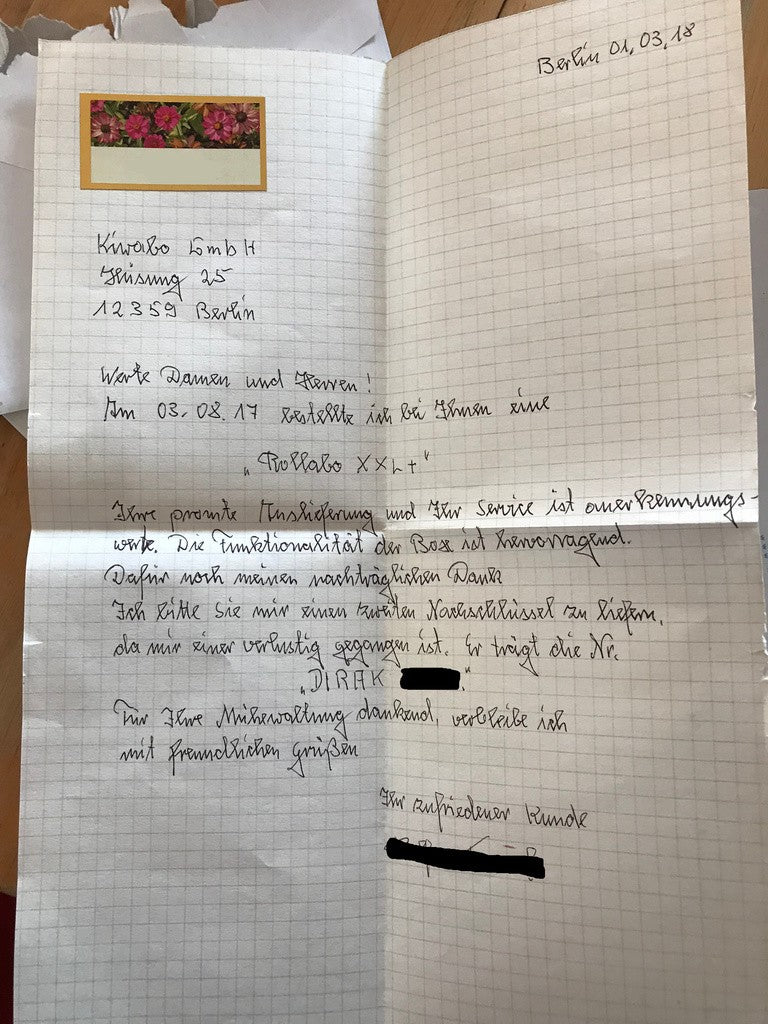 Berlin 01,03,18
Kiwabo GmbH
Hüsung 25
12359 Berlin
Werte Damen und Herren!
Am 03.08.17 bestellte ich bei Ihnen eine
„Rollabo XXL+"
Ihre promte Auslieferung und Ihr Service ist anerkennungs-
wert. Die Funktionalität der Box ist hervorragend.
Dafür noch meinen nachträglichen Dank
Ich bitte Sie mir einen zweiten Nachschlüssel zu liefern,
da mir einer verlustig gegangen ist. Er trägt die Nr.
„DIRAK "
Für Ihre Mühewaltung dankend, verbleibe ich
mit freundlichen Grüßen
Ihr zufriedener Kunde